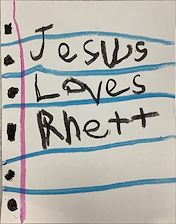 Jesus
Loves
Rhett